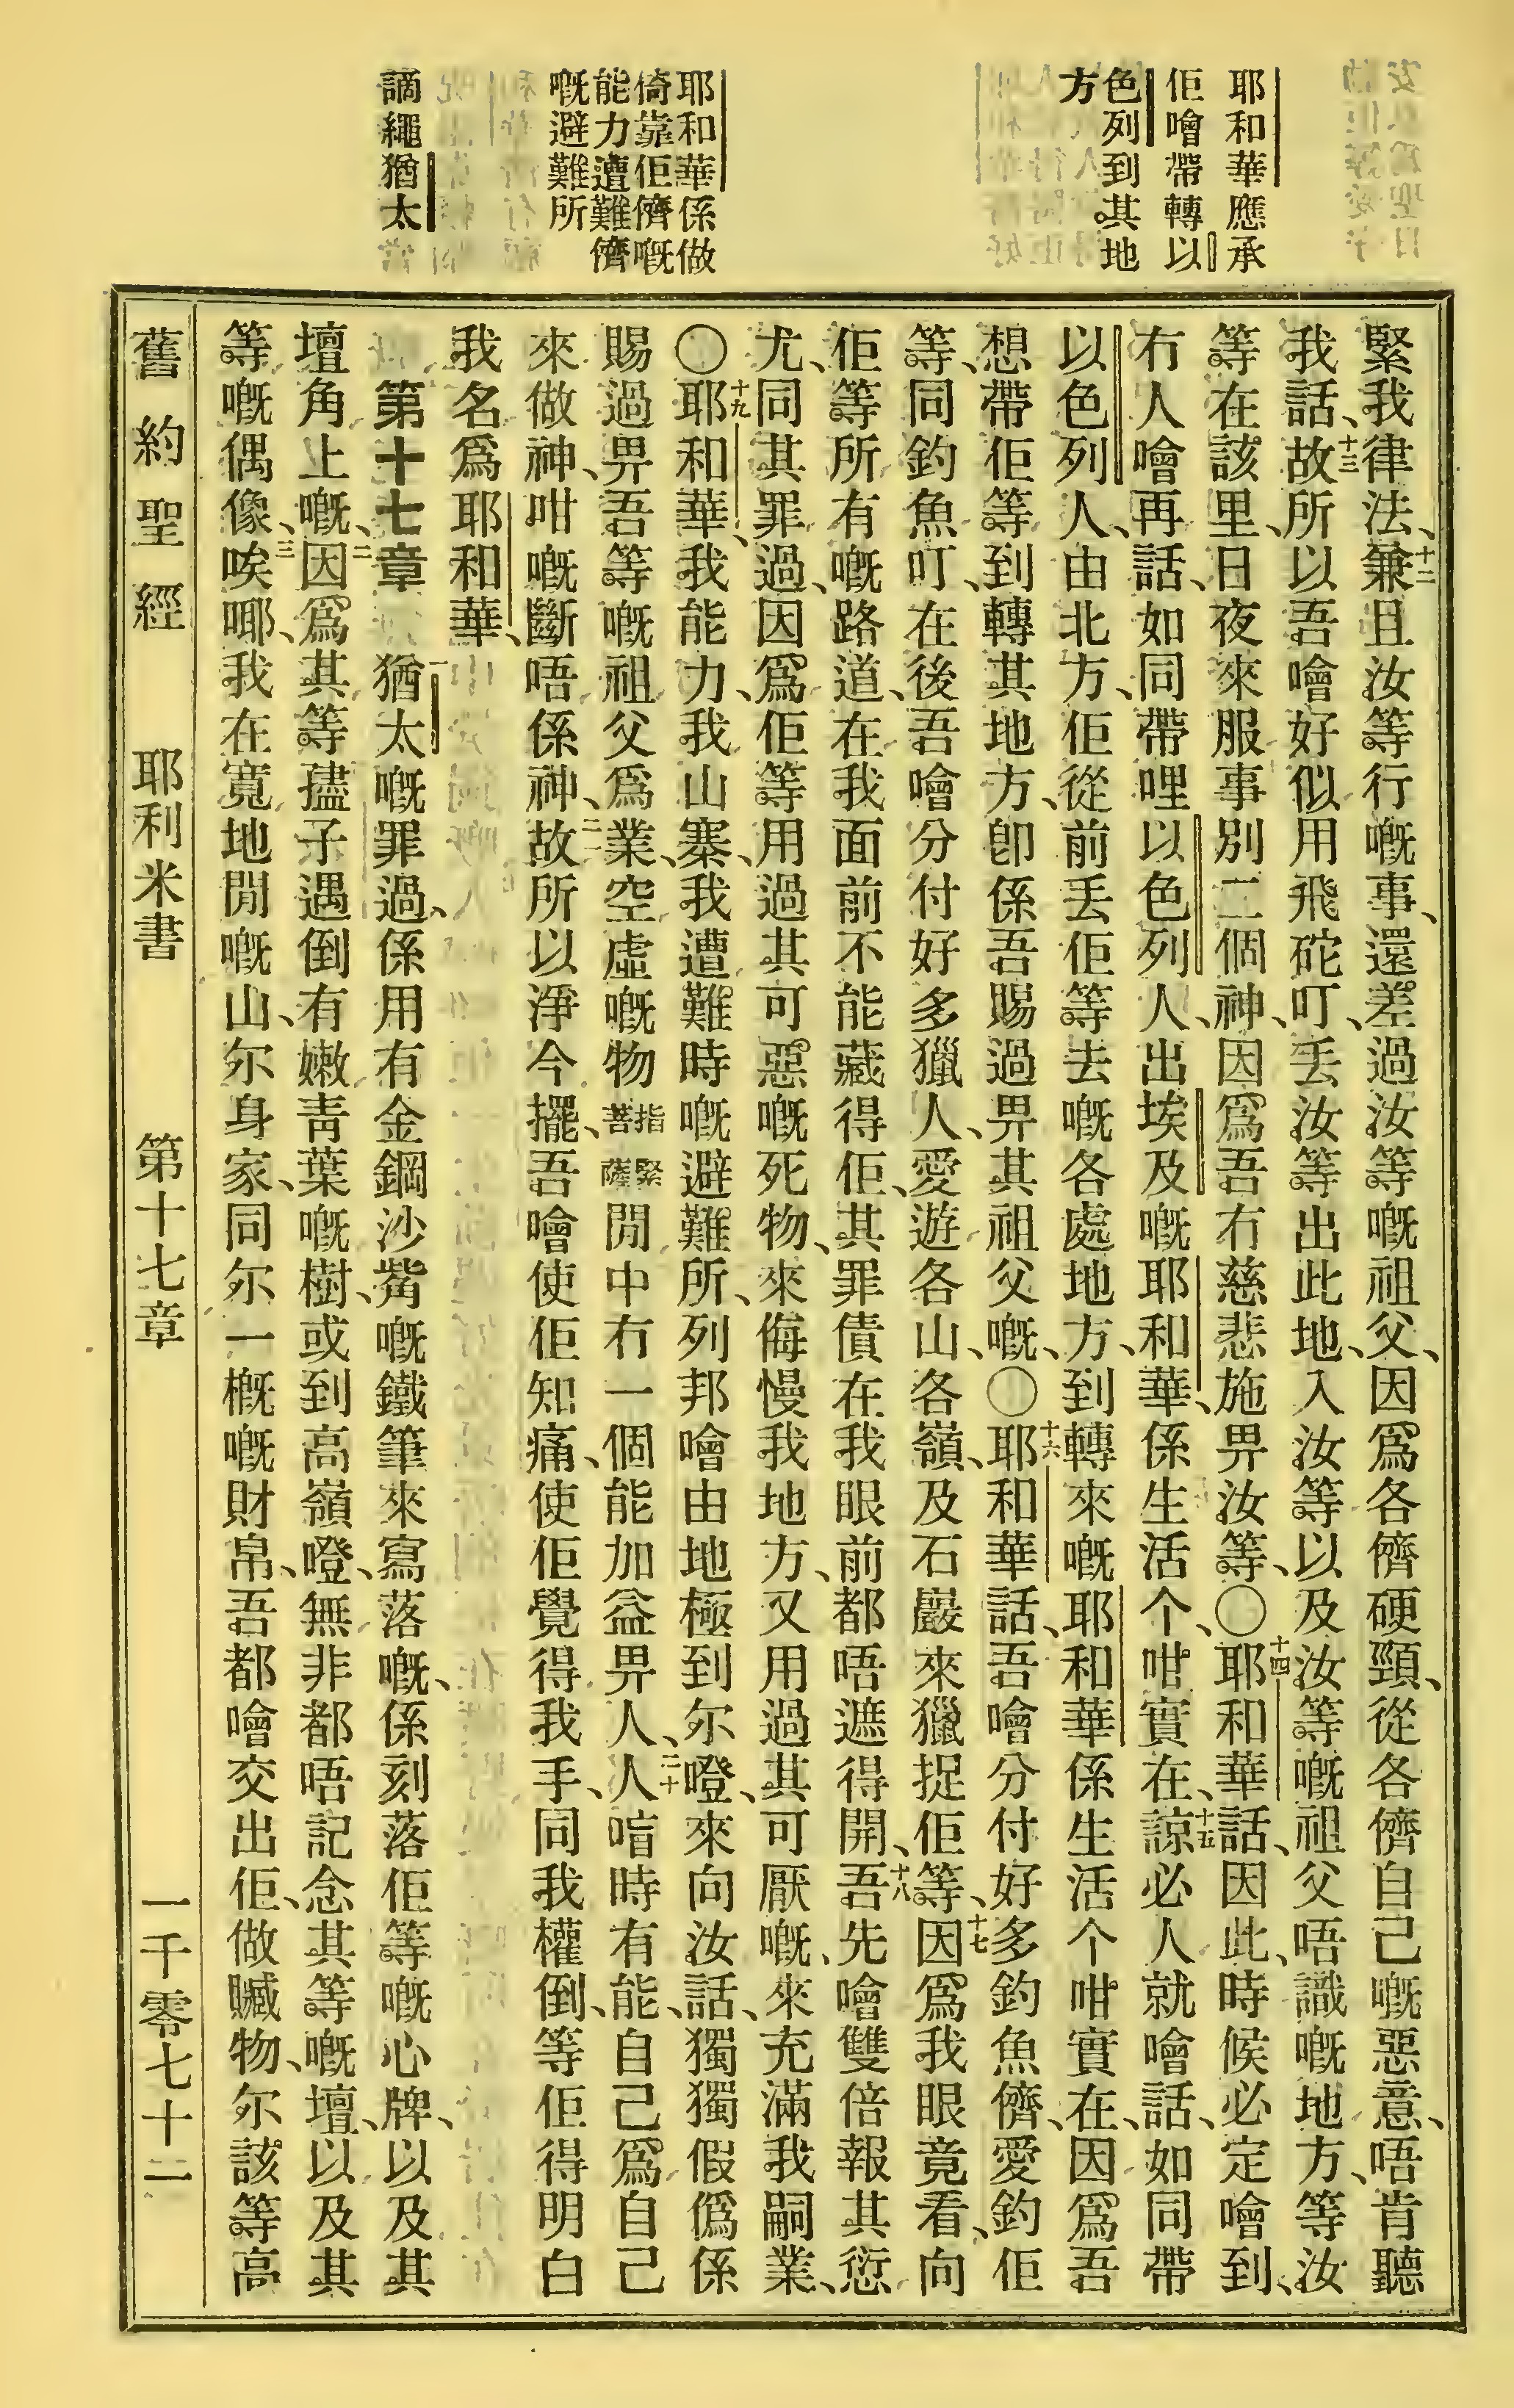 耶和華應承
佢噲帶轉以
色列到其地
方
耶和華係做
倚靠佢儕嘅
能力遭難儕
嘅避難所
謫繩猶太
緊我律法、十二兼且汝等行嘅事、還差過汝等嘅祖父、因爲各儕硬頸、從各儕自己嘅惡意、唔肯聽
我話、十三故所以吾噲好似用飛砣叮、丢汝等出此地、入汝等以及汝等嘅祖父唔識嘅地方、等汝
等在該里、日夜來服事別二個神、因爲吾冇慈悲施畀汝等、〇十四耶和華話、因此、時候必定噲到、
冇人噲再話、如同帶哩以色列人、出埃及嘅耶和華、係生活个、咁實在、十五諒必人就噲話、如同帶
以色列人、由北方、佢從前丢佢等去嘅各處地方、到轉來嘅耶和華係生活个咁實在、因爲吾
想帶佢等到轉其地方、卽係吾賜過畀其祖父嘅、〇十六耶和華話、吾噲分付好多釣魚儕、愛釣佢
等、同釣魚叮、在後吾噲分付好多獵人、愛遊各山、各嶺、及石巖來獵捉佢等、十七因爲我眼竟看、向
佢等所有嘅路道、在我面前不能藏得佢、其罪債在我眼前都唔遮得開、十八吾先噲雙倍報其愆
尤、同其罪過、因爲佢等用過其可惡嘅死物、來侮慢我地方、又用過其可厭嘅、來充滿我嗣業、
〇十九耶和華、我能力、我山寨、我遭難時嘅避難所、列邦噲由地極到尔嶝、來向汝話、獨獨假僞係
賜過畀吾等嘅祖父爲業、空虛嘅物指緊菩薩閒中冇一個能加益畀人、二十人喑時有能、自己爲自己
來做神、咁嘅斷唔係神、二一故所以淨今擺、吾噲使佢知痛、使佢覺得我手、同我權倒、等佢得明白
我名爲耶和華、
第十七章　一猶太嘅罪過、係用有金鋼沙觜嘅鐵筆來寫落嘅、係刻落佢等嘅心牌、以及其
壇角上嘅、二因爲其等孻子遇倒有嫩靑葉嘅樹、或到高嶺嶝、無非都唔記念其等嘅壇、以及其
等嘅偶像、三唉㖿、我在寬地閒嘅山、尔身家、同尔一概嘅財帛、吾都噲交出佢、做贓物、尔該等高
舊約聖經　耶利米書　第十七章　一千零七十二